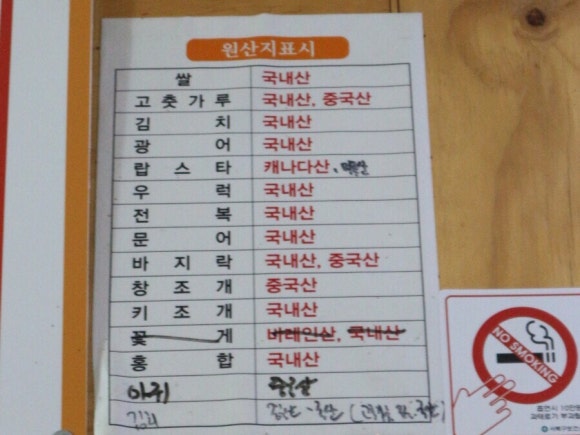 원산지표시
쌀 국내산
고춧가루 국내산, 중국산
김치 국내산
광어 국내산
랍스타 캐나다산,
우럭 국내산
전복 국내산
문어 국내산
바지락 국내산, 중국산
창조개 중국산
키조개 국내산
꽃게 바레인산, 국내산
홍합 국내산
아귀 중국산
NO SMOKING